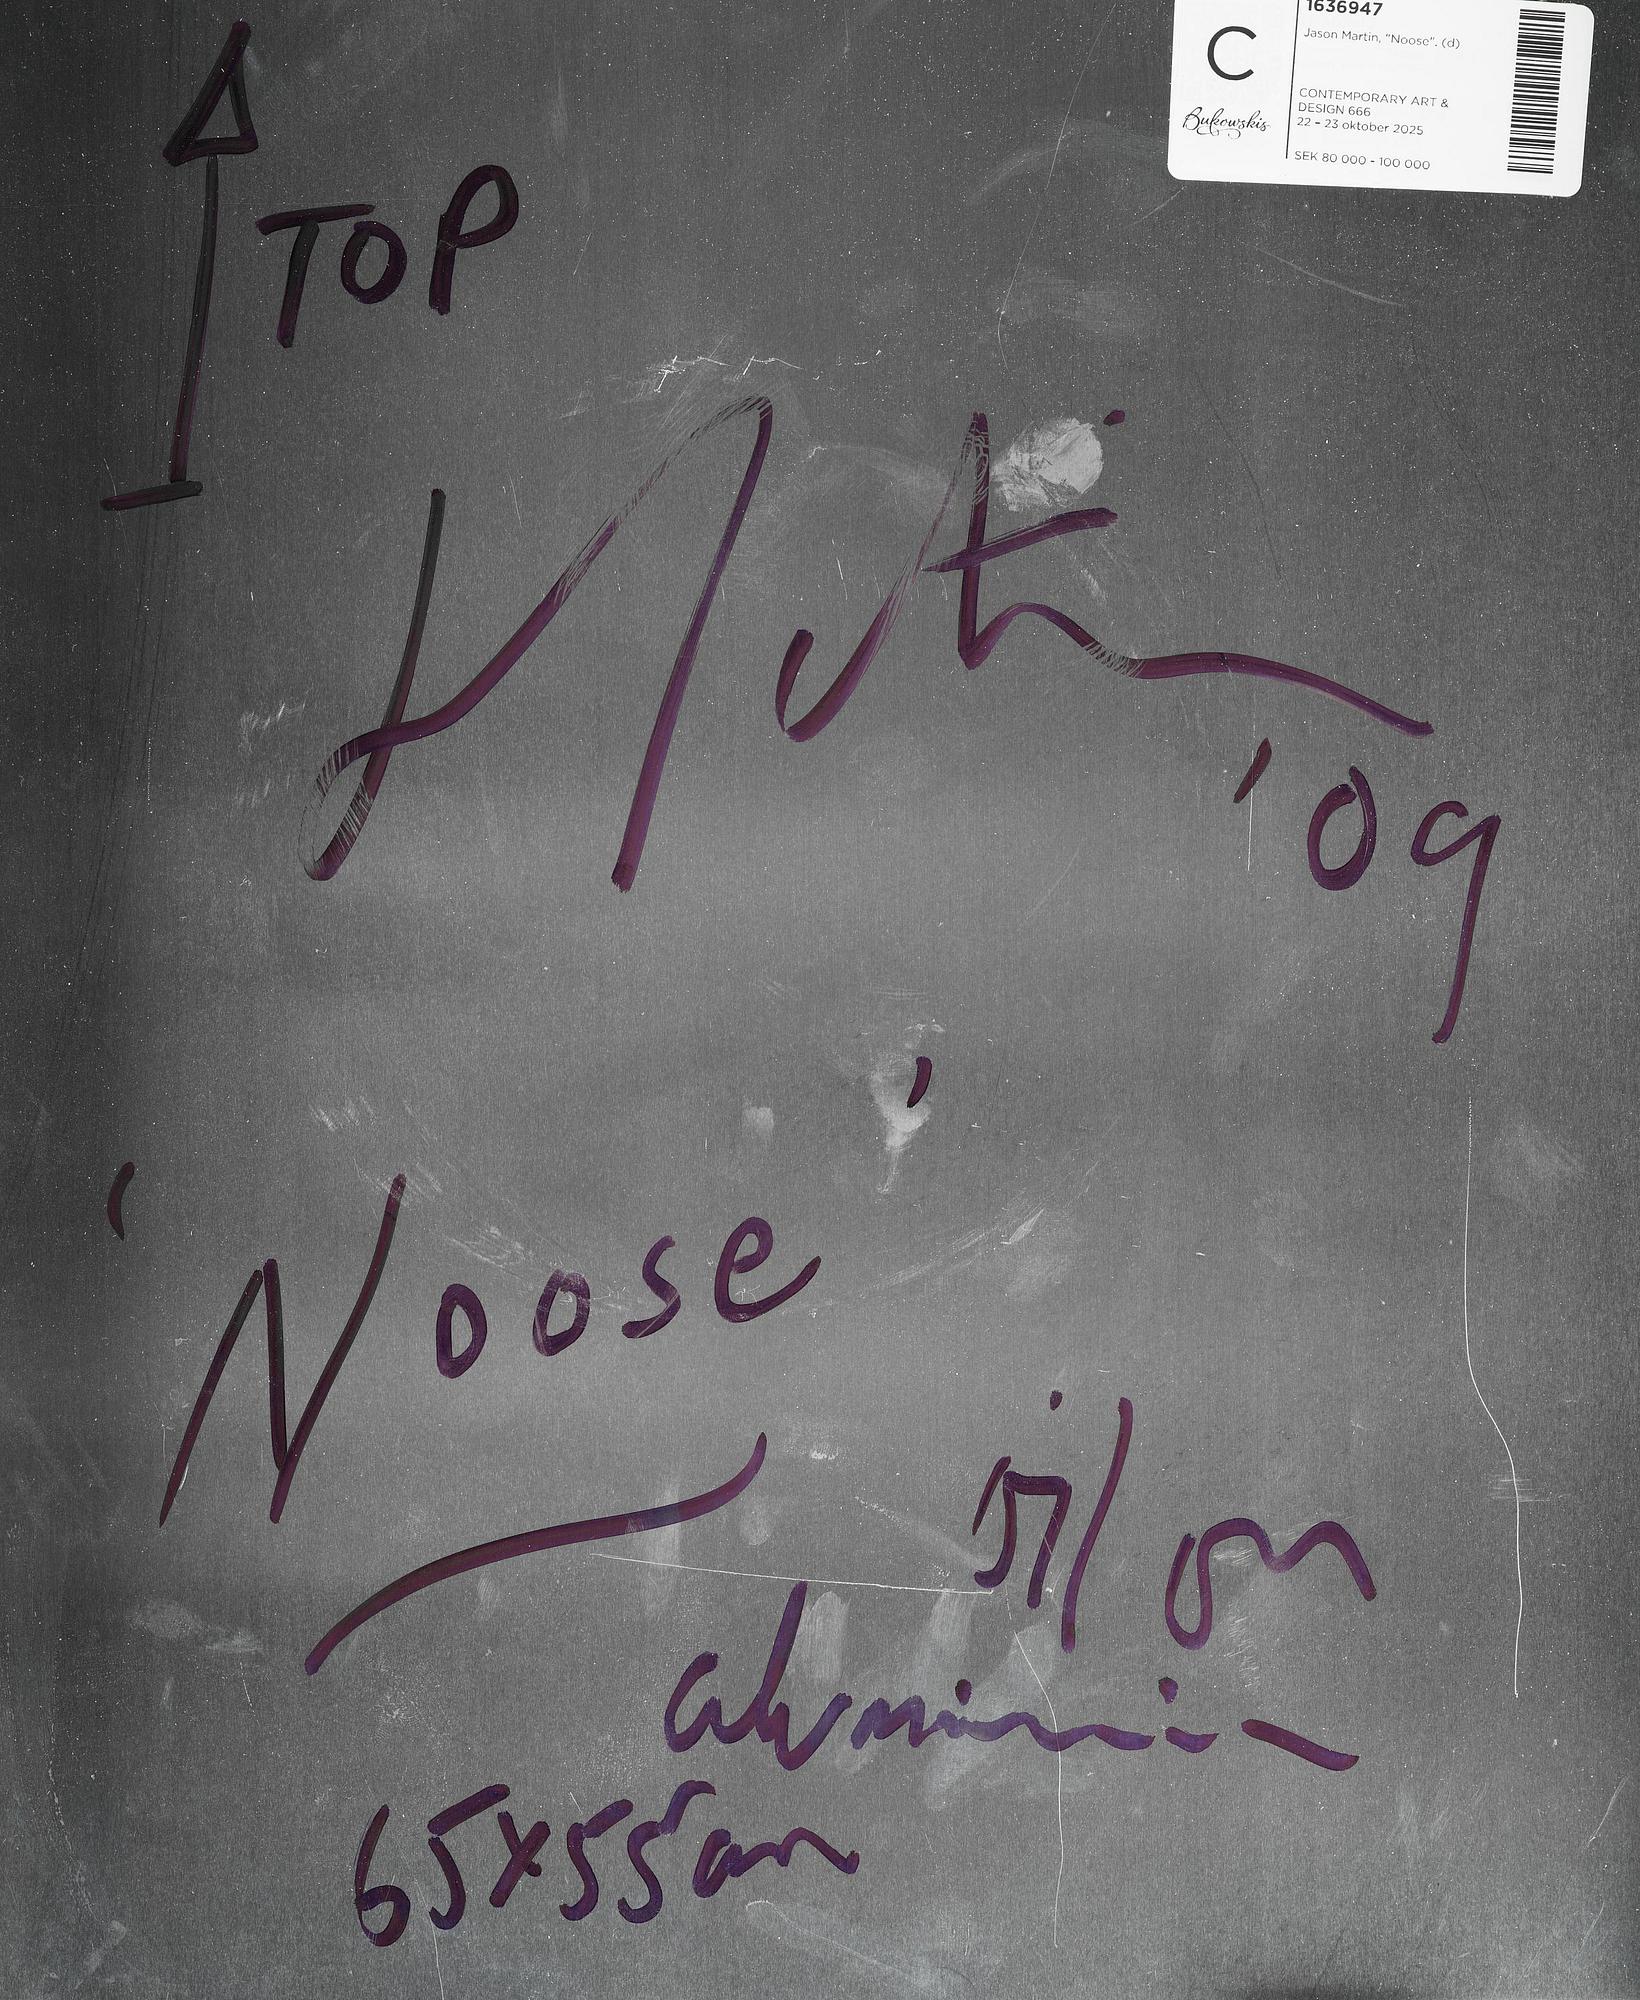 1636947
Jason Martin, "Noose". (d)
C
Bukowskis
CONTEMPORARY ART &
DESIGN 666
22 – 23 oktober 2025
SEK 80 000 - 100 000
TOP
J Martin
'09
'Noose'
oil on
aluminium
65x55cm